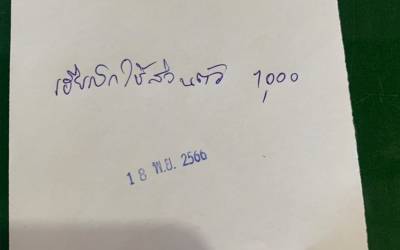 เบิกใช้ส่วนตัว 1,000
18 พ.ย. 2566